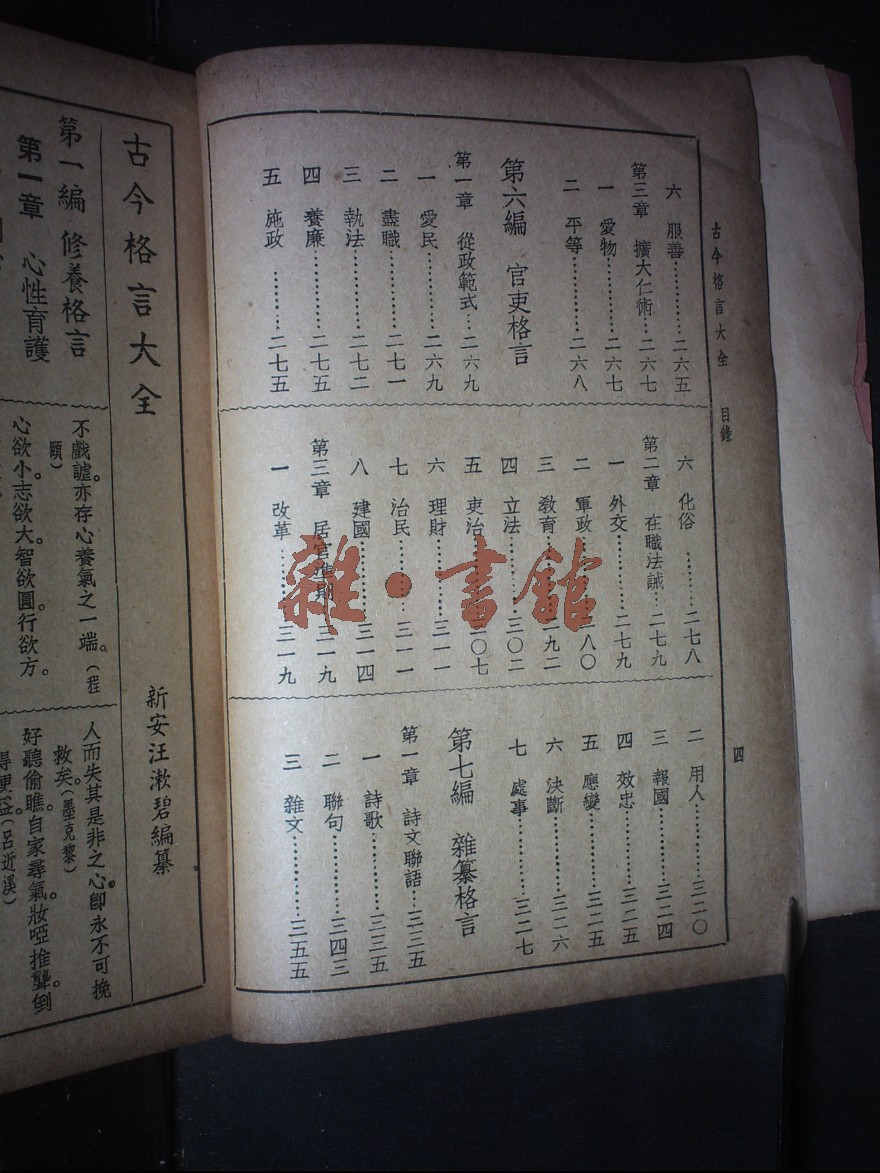 古今格言大全 目錄
四
六 服善…………二六五
第三章 擴大仁術…二六七
一 愛物…………二六七
二 平等…………二六八
第六編 官吏格言
第一章 從政範式…二六九
一 愛民…………二六九
二 盡職…………二七一
三 執法…………二七二
四 養廉…………二七五
五 施政…………二七五
六 化俗…………二七八
第二章 在職法誡…二七九
一 外交…………二七九
二 軍政…………二八〇
三 教育…………二九二
四 立法…………三〇二
五 吏治…………三〇七
六 理財…………三一一
七 治民…………三一一
八 建國…………三一四
第三章 居官準則…三一九
一 改革…………三一九
二 用人…………三二〇
三 報國…………三二四
四 效忠…………三二五
五 應變…………三二五
六 決斷…………三二六
七 處事…………三二七
第七編 雜纂格言
第一章 詩文聯語…三三五
一 詩歌…………三三五
二 聯句…………三四三
三 雜文…………三五五
古今格言大全
新安汪漱碧編纂
第一編 修養格言
第一章 心性育護
不戲謔亦存心養氣之一端。(程
頤)
心欲小。志欲大。智欲圓。行欲方。
人而失其是非之心。卽永不可挽
救矣。(墨克黎)
好聽偷瞧。自家尋氣。妝啞推聾。倒
得便益。(呂近溪)
雜·書館